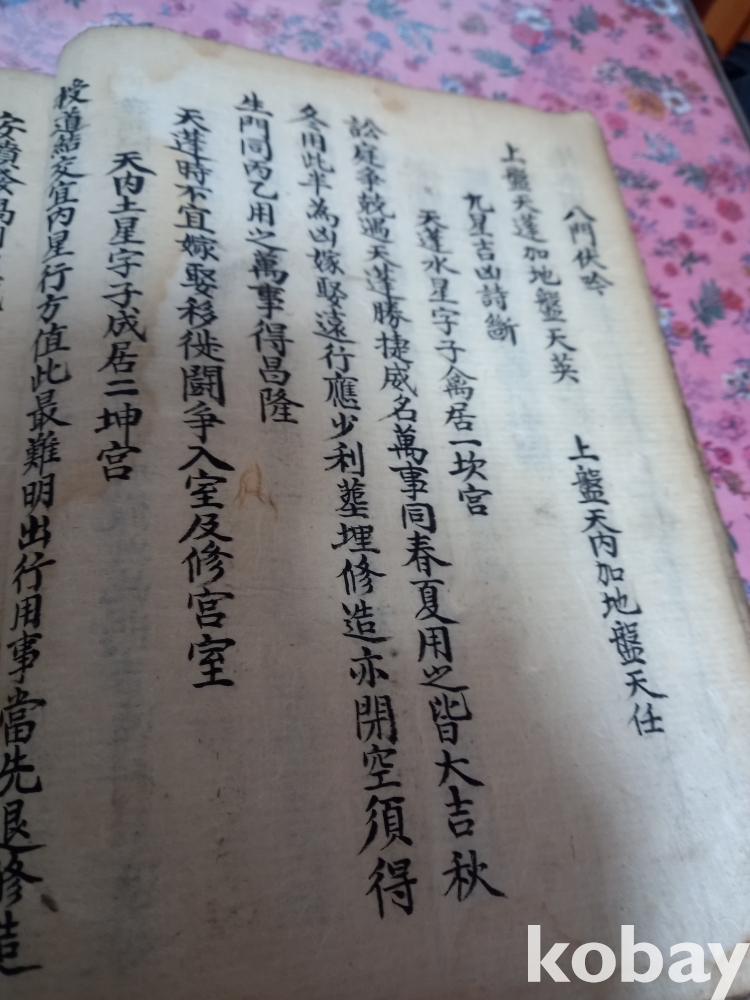 八門伏吟
上盤天蓬加地盤天英 上盤天內加地盤天任
九星吉凶詩斷
天蓬水星字子禽居一坎宮
訟庭爭兢過天蓬勝捷威名萬事同春夏用之皆大吉秋
冬用此半為凶嫁娶遠行應少利塟埋修造亦閑空須得
生門同丙乙用之萬事得昌隆
天蓬時不宜嫁娶移徙鬪爭入室及修宮室
天內土星字子成居二坤宮
授道結交宜內星行方值此最難明出行用事當先退修造
安墳發
kobay